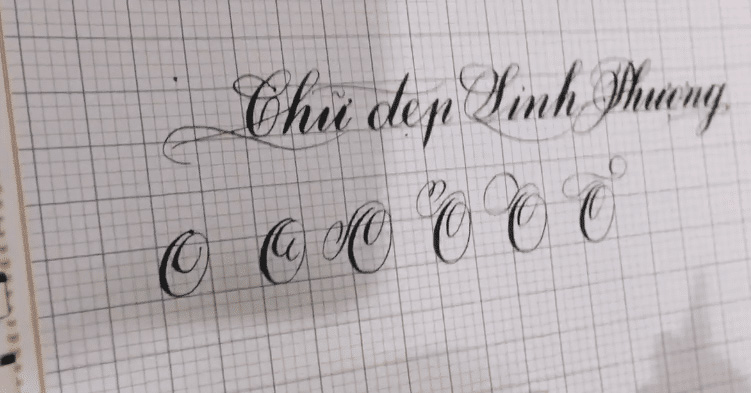 Chữ đẹp Linh Phương
O O O O O O